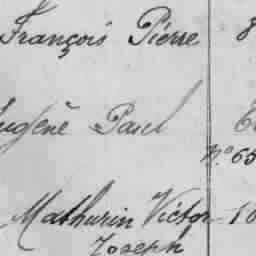 François Pierre 8
Eugène Paul
N.º 65
Mathurin Victor 10
Joseph